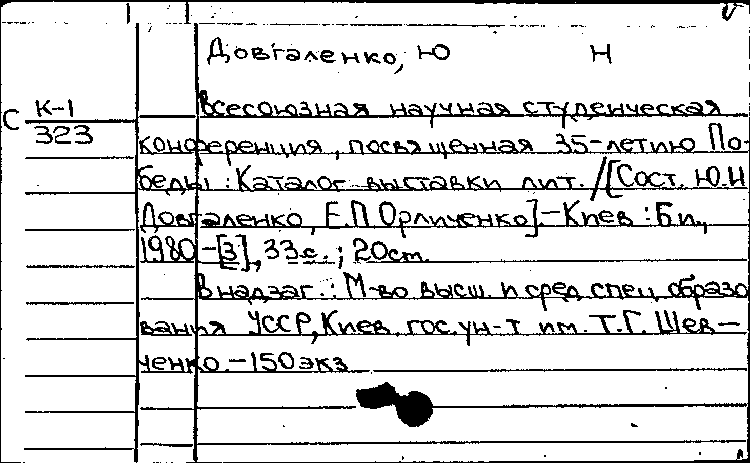 Довгаленко, Ю Н
С К-1
323
Всесоюзная научная студенческая
конференция, посвященная 35-летию По-
беды : Каталог выставки лит. /[Сост. Ю.Н
Довгаленко, Е.П Орличенко].-Киев : Б.и.,
1980 -[3], 33с. ; 20см.
В надзаг. : М-во высш. и сред. спец. образо
вания УССР, Киев. гос. ун-т им. Т.Г. Шев-
ченко.-150 экз